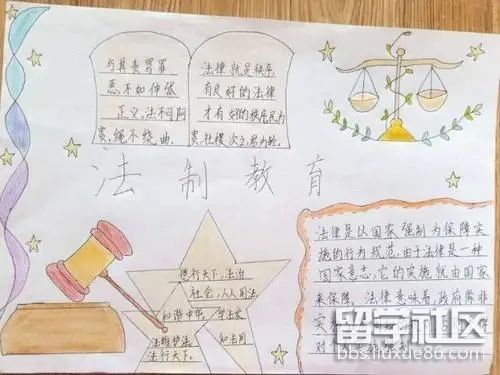 与其责骂罪
恶,不如伸张
正义,法不阿
贵,绳不挠曲.
法律就是秩序
有良好的法律
才有好的秩序民为
贵,社稷次之,君为轻.
法制教育
德行天下,法治
社会,人人用法
和谐中华
学法
和法同
法维护法
法行天下。
法律是以国家强制为保障实
施的行为规范,由于法律是一种
国家意志,它的实施就由国家
来保障。法律意味着,政府除非
实
对
留学社区
bbs.liuxue86.com